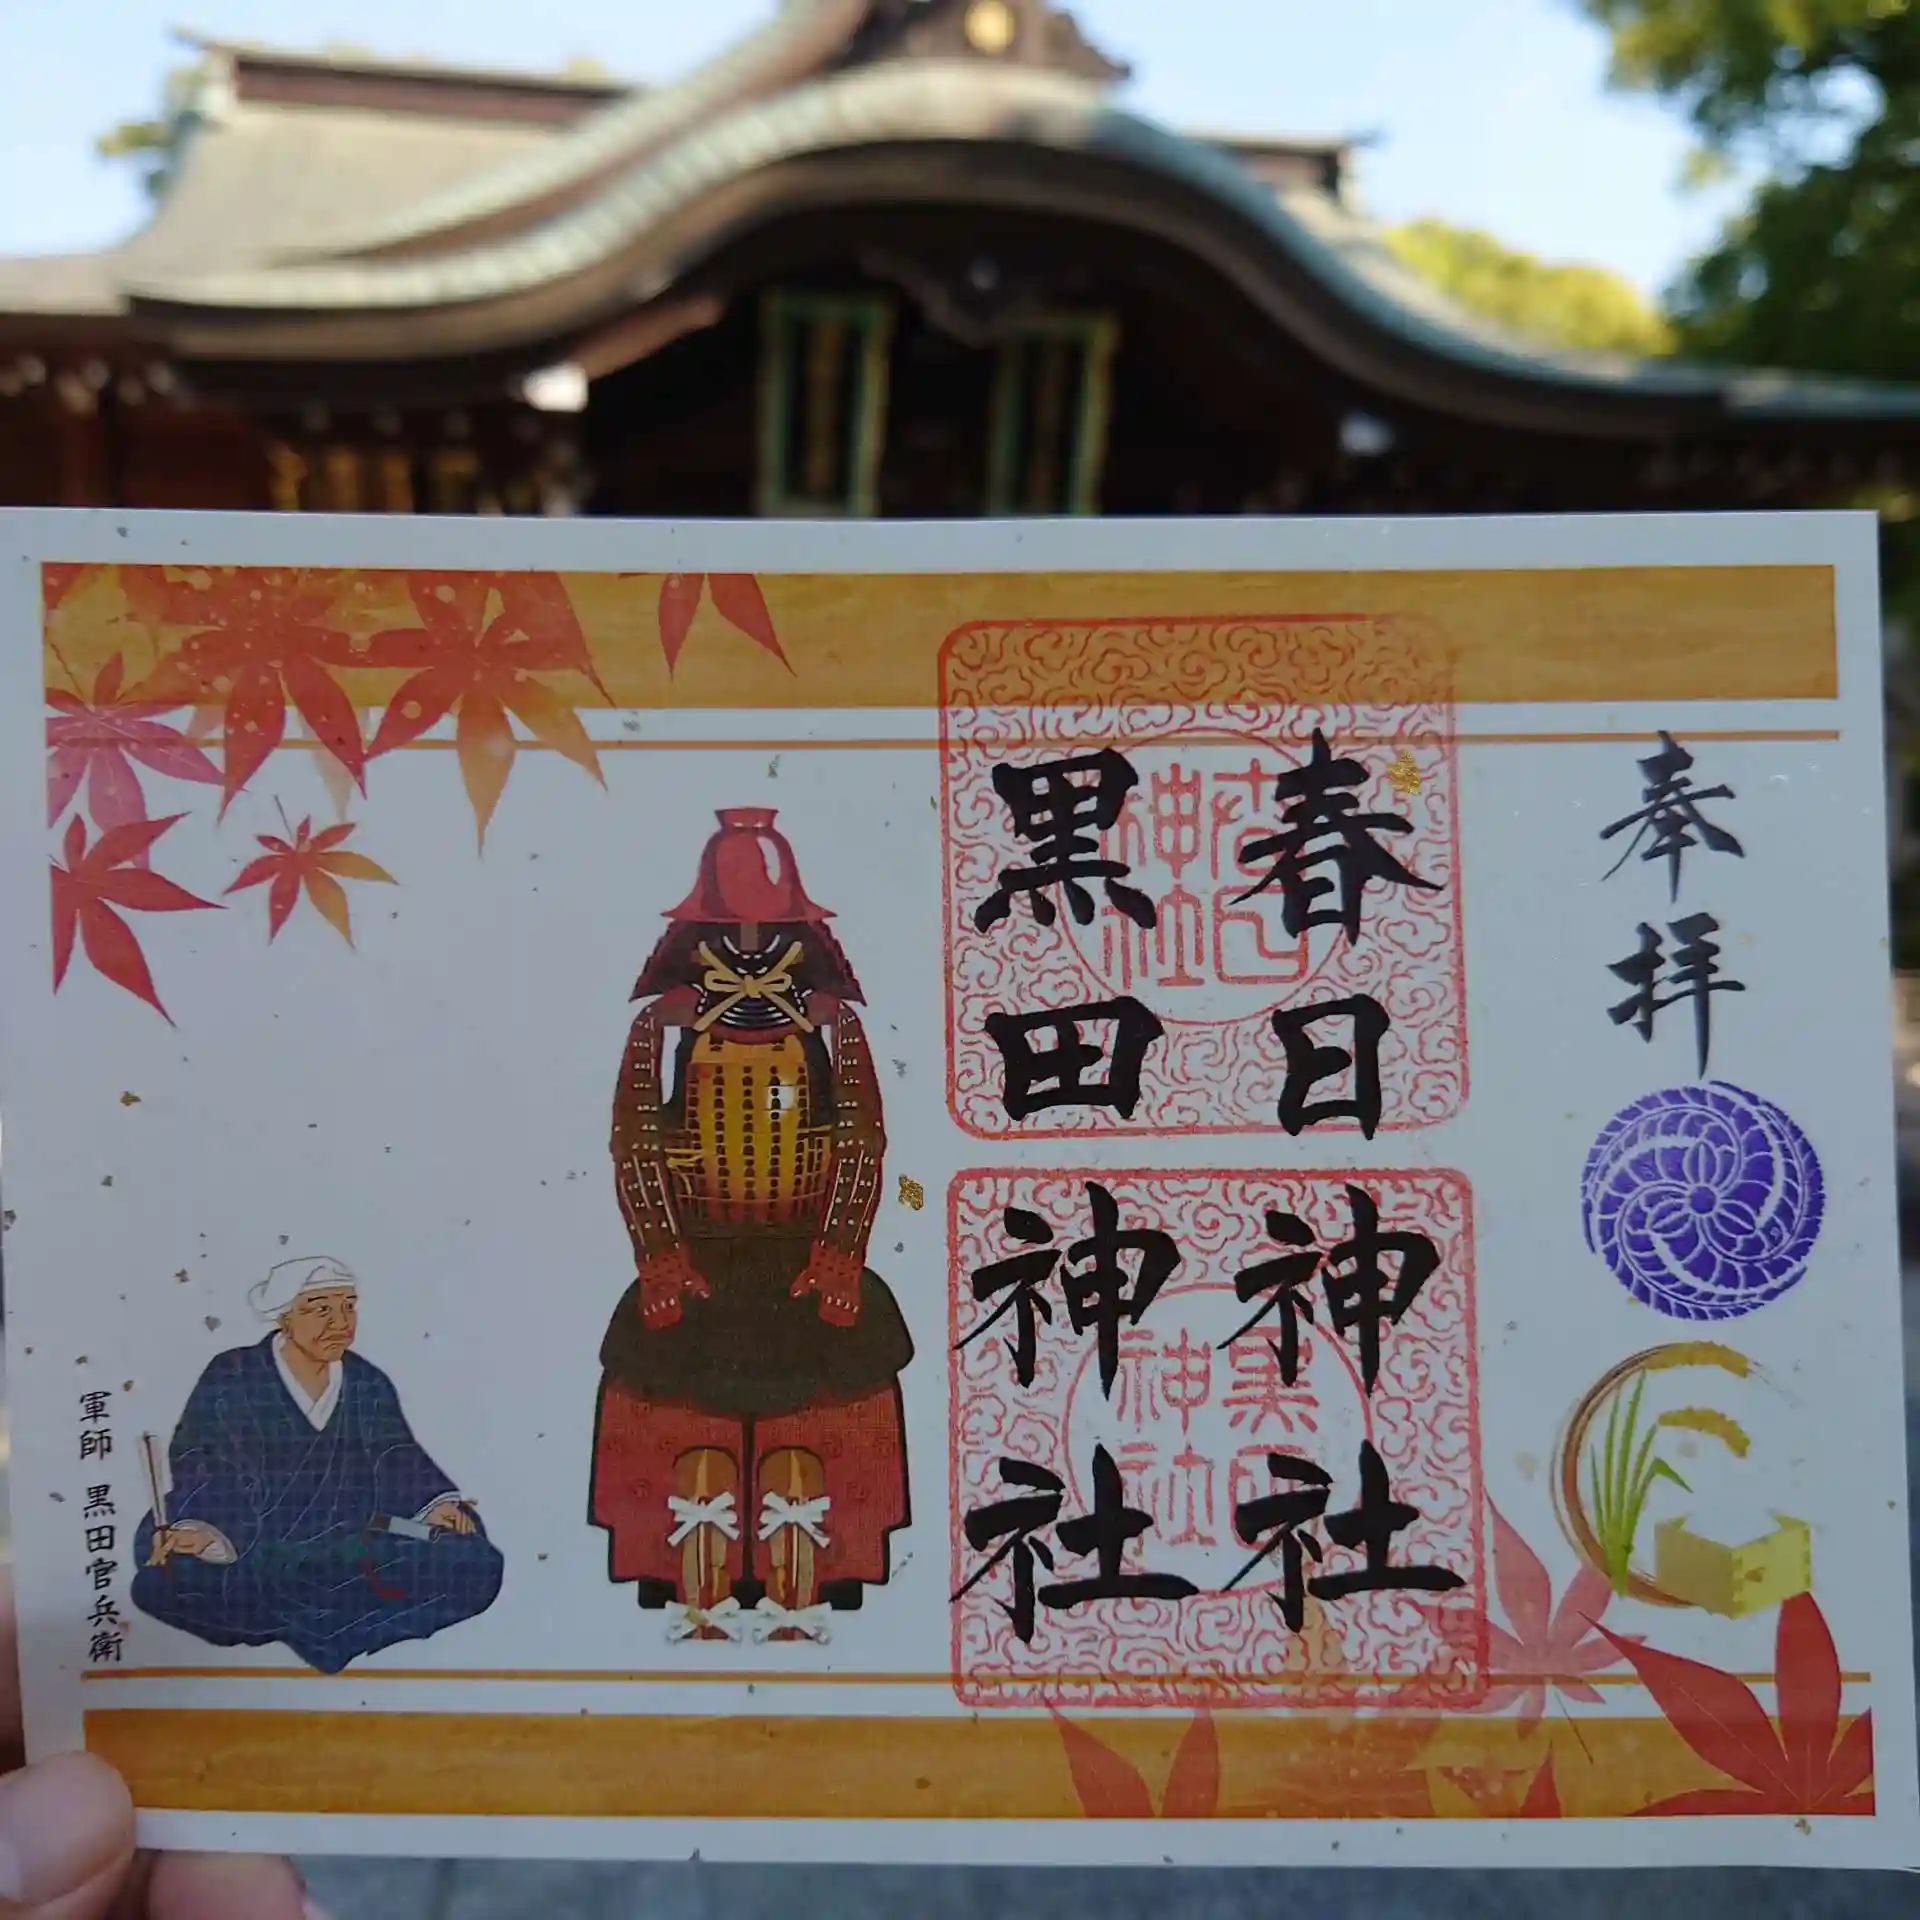 奉拝
春日神社
黒田神社
春日神社
黒田神社
軍師 黒田官兵衛